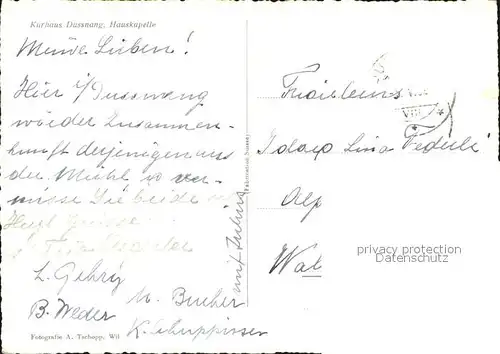 Kurhaus Dussnang, Hauskapelle
Meine Lieben!
Hier i/Dussnang
wieder Zusammen-
kunft derjenigen aus
der Mühl wo ver-
misse Sie beide
Herzl Grüsse
L. Gehry
B. Weder M. Bucher
K. Schuppisser
Fotografie A. Tschopp, Wil
Fräuleins
Ida & Lina Federli
Alp
Wal
privacy protection
AnsichtskartenVersand.com